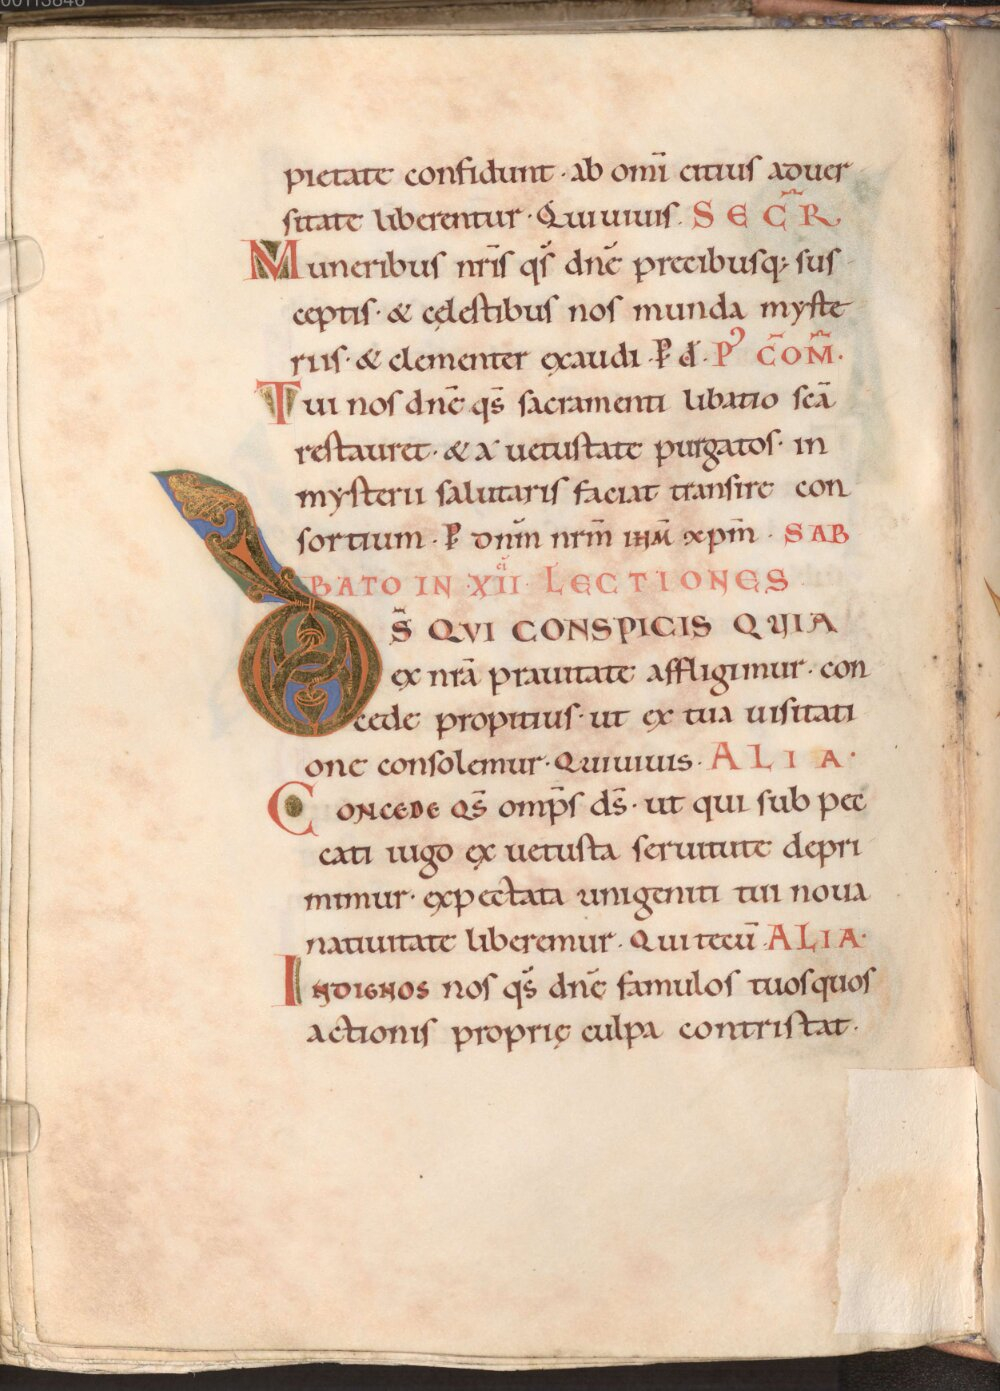 00113846
pietate confidunt · ab omi̅ citius aduer
sitate liberentur · Quiuiuis. SEC̅R
Muneribus nr̅is qs̅ dne̅ precibusq; sus
ceptis · & cęlestibus nos munda myste
riis · & clementer exaudi · P̲ d̅ · P' CO̅M̅ ·
Tui nos dne̅ qs̅ sacramenti libatio sca̅
restauret · & a uetustate purgatos · in
mysterii salutaris faciat transire con
sortium · P̲ dnm̅ nrm̅ ihm̅ xpm̅ · SAB
BATO IN XII LECTIONES
D S̅ QVI CONSPICIS QVIA
ex nra̅ prauitate affligimur · con
cede propitius · ut ex tua uisitati
one consolemur · Quiuiuis · ALIA ·
CONCEDE QS̅ omp̅s ds̅ · ut qui sub pec
cati iugo ex uetusta seruitute depri
mimur · expectata unigeniti tui noua
natiuitate liberemur · Qui tecu̅ · ALIA ·
INDIGNOS nos qs̅ dne̅ famulos tuos quos
actionis proprię culpa contristat ·